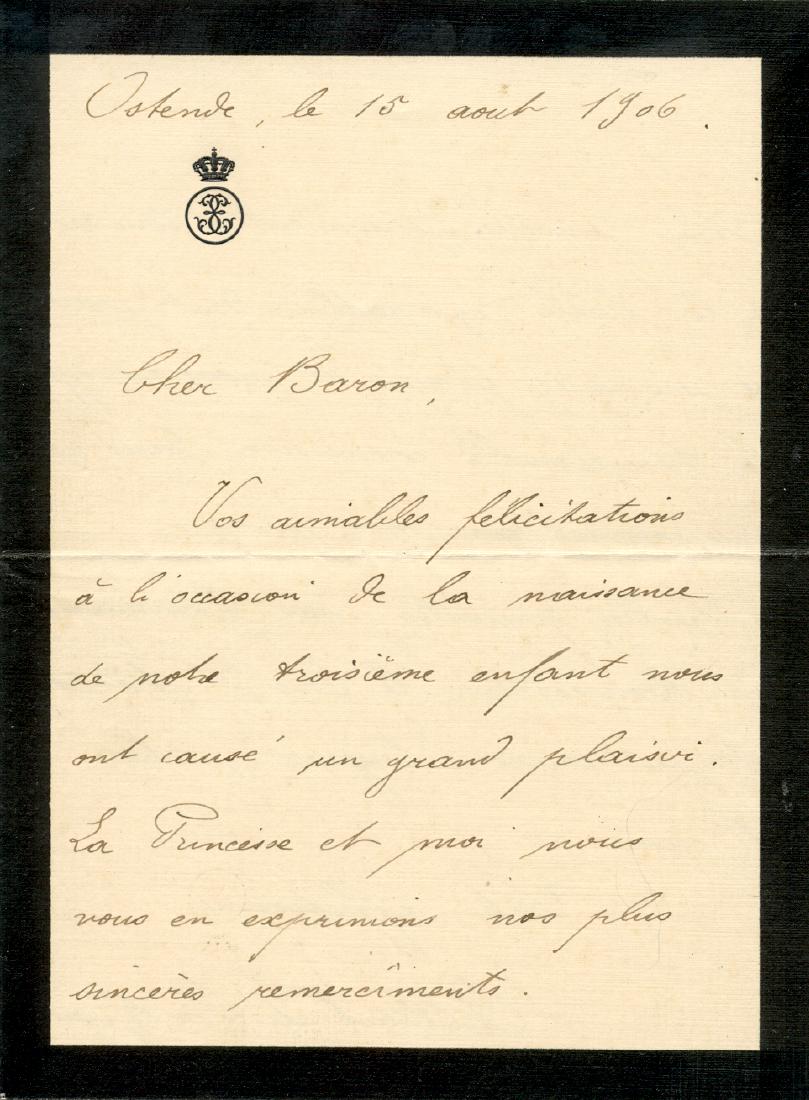 Ostende, le 15 aout 1906.
Cher Baron,
Vos aimables félicitations
à l'occasion de la naissance
de notre troisième enfant nous
ont causé un grand plaisir.
La Princesse et moi nous
vous en exprimons nos plus
sincères remercîments.